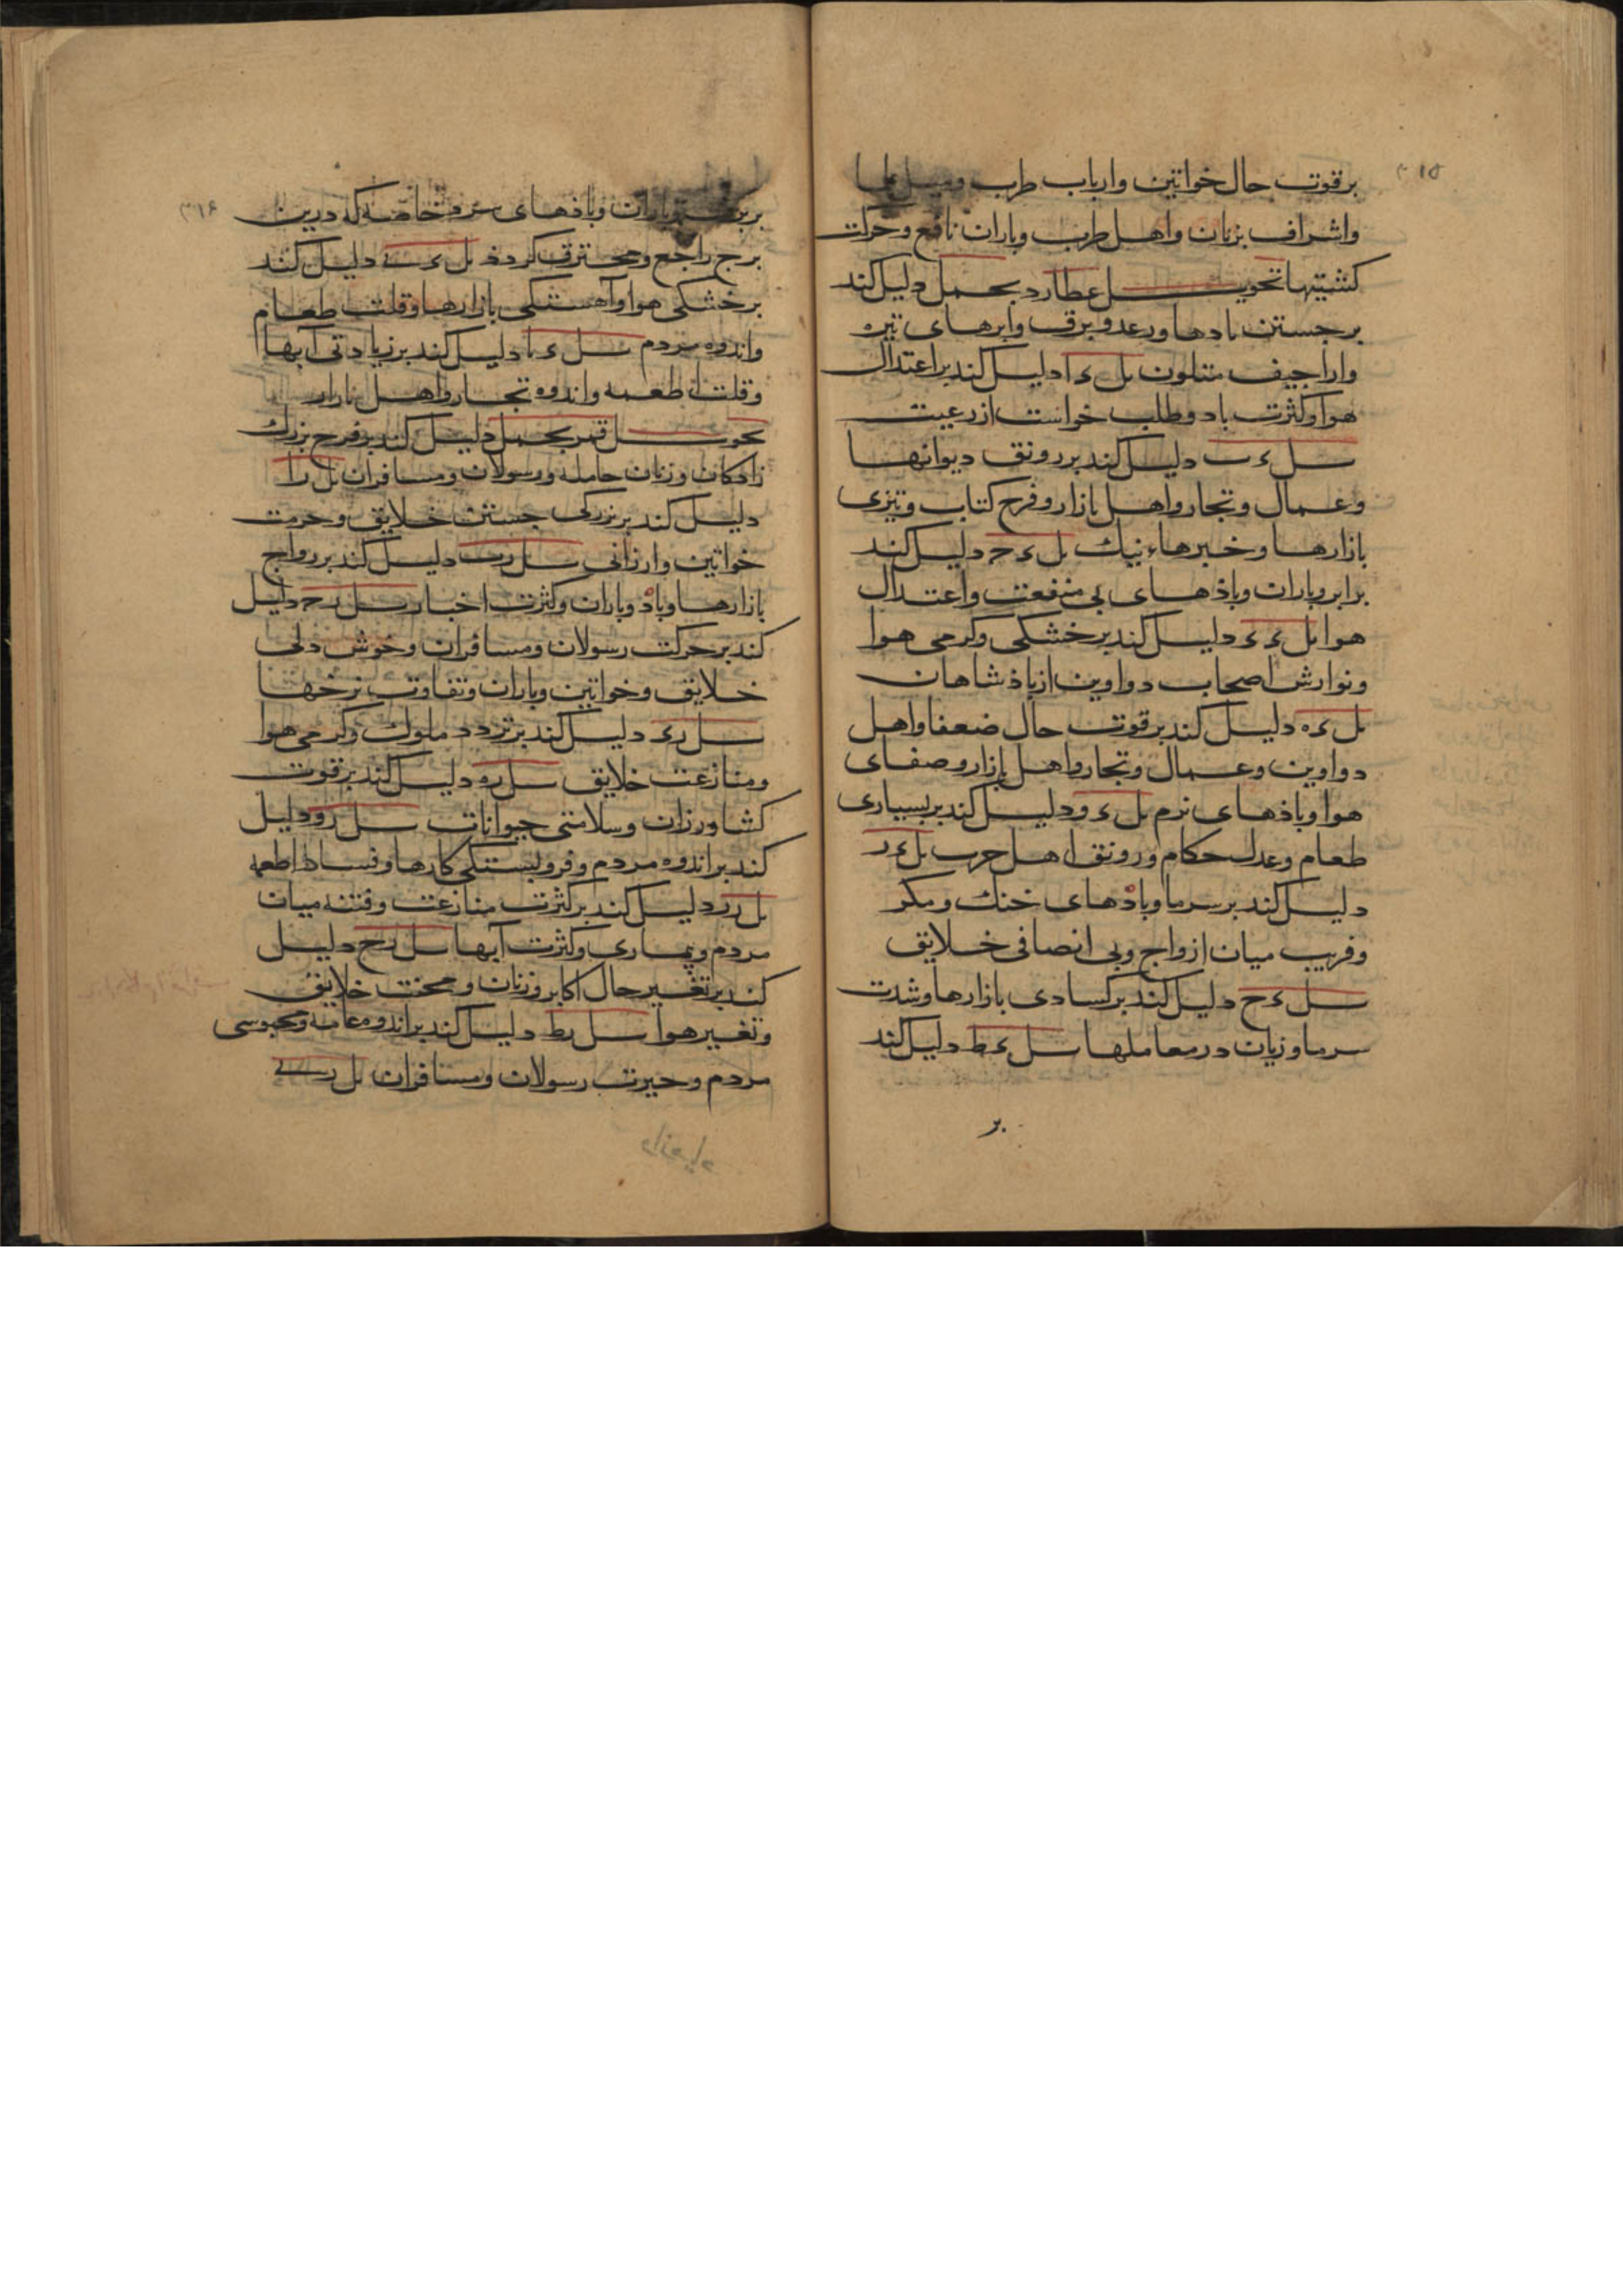 ۳۱۵
بر قوت حال خواتین وارباب طرب
واشراف بزنان واهل طرب وباران نافع وحرکت
کشتیها تحویل عطارد بحمل دلیل کند
بر جستن بادها ورعد وبرق وابرهای تیره
واراجیف متلون بل ء ا دلیل کند بر اعتدال
هوا وکثرت باد وطلب خواست از رعیت
بل ء ب دلیل کند بر رونق دیوانها
وعمال وتجار واهل بازار وفرح کتاب وتیزی
بازارها وخبرهاء نیک بل ء ح دلیل کند
بر ابر وباران وباذهای بی منفعت واعتدال
هوا بل ء ء دلیل کند بر خشکی وکرمی هوا
ونوازش اصحاب دواوین از باذشاهان
بل ء ه دلیل کند بر قوت حال ضعفا واهل
دواوین وعمال وتجار واهل بازار وصفای
هوا وباذهای نرم بل ء و دلیل کند بر بسیاری
طعام وعدل حکام ورونق اهل حرب بل ء ر
دلیل کند بر سرما وباذهای خنک ومکر
وفریب میان ازواج وبی انصافی خلایق
بل ء ح دلیل کند بر کسادی بازارها وشدت
سرما وزیان در معاملها بل ء ط دلیل کند
بر
۳۱۶
باران وباذهای سرد خاصه که درین
برج راجع ومحترق کردد بل ء ی دلیل کند
بر خشکی هوا وآهستکی بازارها وقلت طعام
واندوه مردم بل ء یا دلیل کند بر زیادتی آبها
وقلت اطعمه واندوه تجار واهل بازار
تحویل قمر بحمل دلیل کند بر فرح بزرک
زادکان وزنان حامله ورسولان ومسافران بل ر ا
دلیل کند بر بزرکی جستن خلایق وحرمت
خواتین وارزانی بل ر ب دلیل کند بر رواج
بازارها وباد وباران وکثرت اخبار بل ر ح دلیل
کند بر حرکت رسولان ومسافران وخوش دلی
خلایق وخواتین وباران وتفاوت نرخها
بل ر ء دلیل کند بر تردد ملوک وکرمی هوا
ومنازعت خلایق بل ر ه دلیل کند بر قوت
کشاورزان وسلامتی حیوانات بل ر و دلیل
کند بر اندوه مردم وفروبستکی کارها وفساد اطعمه
بل ر ر دلیل کند بر کثرت منازعت وفتنه میان
مردم وبیماری وکثرت آبها بل ر ح دلیل
کند بر تغییر حال اکابر وزنان ومحنت خلایق
وتغییر هوا بل ر ط دلیل کند بر اندوه عامه ومحبوسی
مردم وحیرت رسولان ومسافران بل ر ی